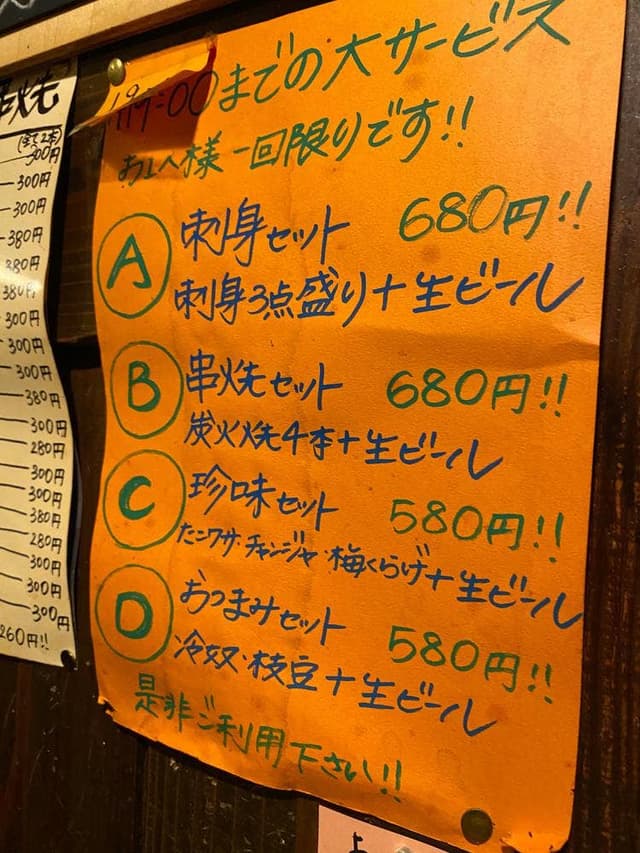 串焼
(全て2本)
300円
300円
300円
380円
280円
380円
300円
300円
300円
380円
300円
280円
300円
300円
380円
280円
300円
300円
300円
260円!!
19:00までの大サービス
お1人様一回限りです!!
A 刺身セット 680円!!
刺身3点盛り+生ビール
B 串焼セット 680円!!
炭火焼4本+生ビール
C 珍味セット 580円!!
たこワサ・チャンジャ・梅くらげ+生ビール
D おつまみセット 580円!!
冷奴・枝豆+生ビール
是非ご利用下さい!!